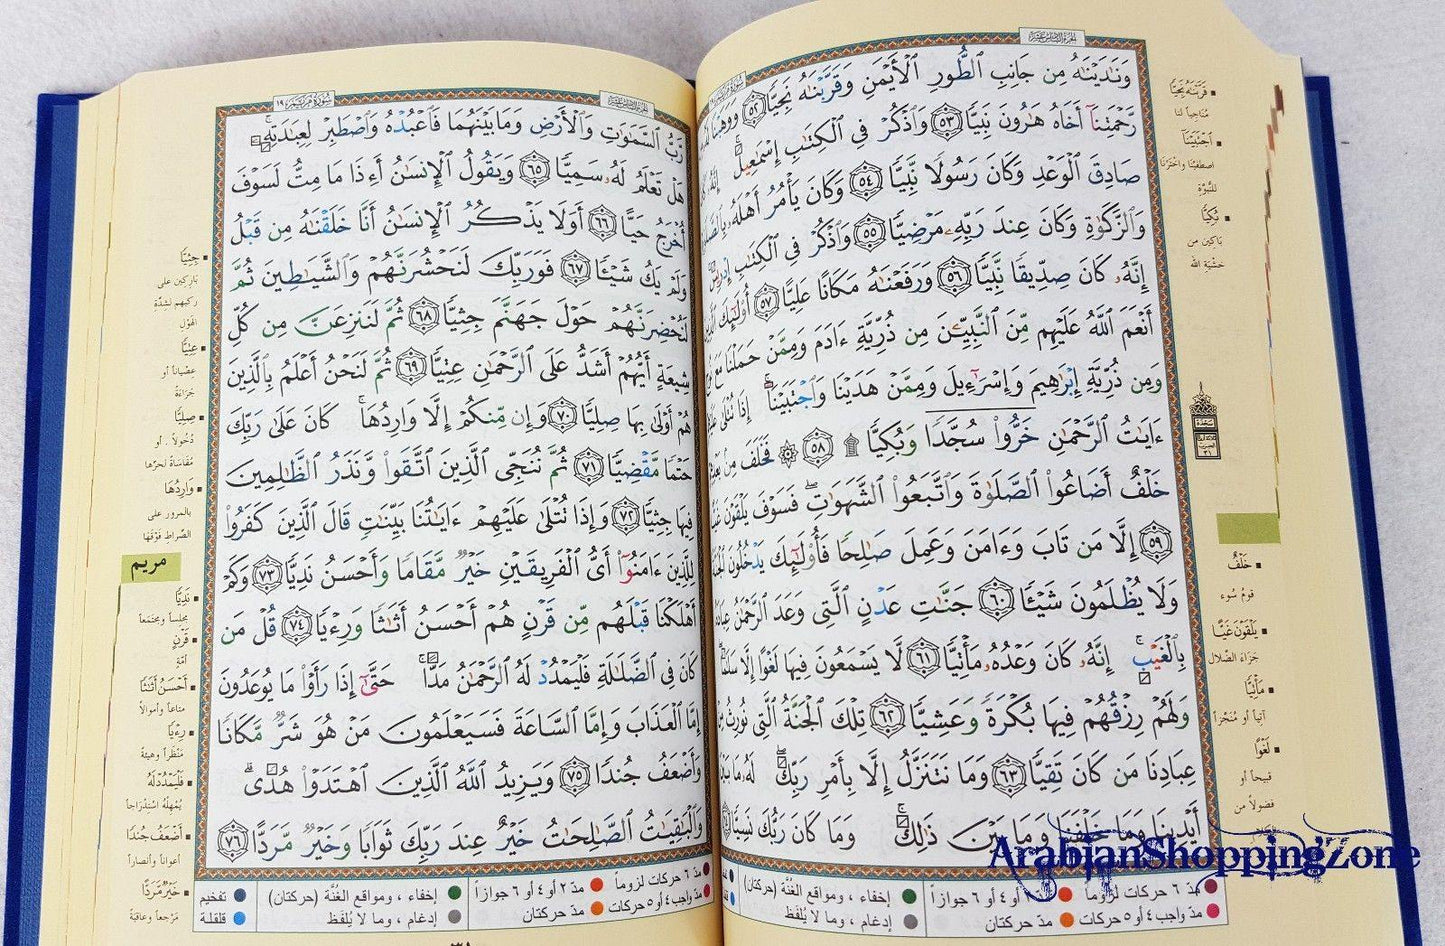 الجزء السادس عشر
وَنَٰدَيْنَٰهُ مِن جَانِبِ ٱلطُّورِ ٱلْأَيْمَنِ وَقَرَّبْنَٰهُ نَجِيًّا ٥٢ وَوَهَبْنَا
رَّحْمَتِنَآ أَخَاهُ هَٰرُونَ نَبِيًّا ٥٣ وَٱذْكُرْ فِى ٱلْكِتَٰبِ إِسْمَٰعِيلَ ۚ إِنَّهُۥ
صَادِقَ ٱلْوَعْدِ وَكَانَ رَسُولًا نَّبِيًّا ٥٤ وَكَانَ يَأْمُرُ أَهْلَهُۥ
وَٱلزَّكَوٰةِ وَكَانَ عِندَ رَبِّهِۦ مَرْضِيًّا ٥٥ وَٱذْكُرْ فِى ٱلْكِتَٰبِ إِدْرِيسَ ۚ
إِنَّهُۥ كَانَ صِدِّيقًا نَّبِيًّا ٥٦ وَرَفَعْنَٰهُ مَكَانًا عَلِيًّا ٥٧ أُو۟لَٰٓئِكَ
أَنْعَمَ ٱللَّهُ عَلَيْهِم مِّنَ ٱلنَّبِيِّـۧنَ مِن ذُرِّيَّةِ ءَادَمَ وَمِمَّنْ حَمَلْنَا مَعَ
وَمِن ذُرِّيَّةِ إِبْرَٰهِيمَ وَإِسْرَٰٓءِيلَ وَمِمَّنْ هَدَيْنَا وَٱجْتَبَيْنَآ ۚ إِذَا تُتْلَىٰ
ءَايَٰتُ ٱلرَّحْمَٰنِ خَرُّوا۟ سُجَّدًا وَبُكِيًّا ۩ ٥٨ ۞ فَخَلَفَ مِنۢ
خَلْفٌ أَضَاعُوا۟ ٱلصَّلَوٰةَ وَٱتَّبَعُوا۟ ٱلشَّهَوَٰتِ ۖ فَسَوْفَ يَلْقَوْنَ
٥٩ إِلَّا مَن تَابَ وَءَامَنَ وَعَمِلَ صَٰلِحًا فَأُو۟لَٰٓئِكَ يَدْخُلُونَ
وَلَا يُظْلَمُونَ شَيْـًٔا ٦٠ جَنَّٰتِ عَدْنٍ ٱلَّتِى وَعَدَ ٱلرَّحْمَٰنُ
بِٱلْغَيْبِ ۚ إِنَّهُۥ كَانَ وَعْدُهُۥ مَأْتِيًّا ٦١ لَّا يَسْمَعُونَ فِيهَا لَغْوًا إِلَّا
وَلَهُمْ رِزْقُهُمْ فِيهَا بُكْرَةً وَعَشِيًّا ٦٢ تِلْكَ ٱلْجَنَّةُ ٱلَّتِى نُورِثُ
عِبَادِنَا مَن كَانَ تَقِيًّا ٦٣ وَمَا نَتَنَزَّلُ إِلَّا بِأَمْرِ رَبِّكَ ۖ لَهُۥ مَا
أَيْدِينَا وَمَا خَلْفَنَا وَمَا بَيْنَ ذَٰلِكَ ۚ وَمَا كَانَ رَبُّكَ نَسِيًّا
قَرَّبْنَٰهُ نَجِيًّا
مُناجياً لنا
ٱجْتَبَيْنَآ
اصطفينا واخترنا
للنبوّة
بُكِيًّا
باكين من
خشية الله
خَلْفٌ
قومُ سُوء
يَلْقَوْنَ غَيًّا
جزاءَ الضّلال
مَأْتِيًّا
آتياً أو مُنْجَزاً
لَغْوًا
قبيحاً أو
فضولاً من
مدّ ٦ حركات لزوماً
أو ٤ أو ٦ جوازاً
إخفاء، ومواقع الغُنَّة (حركتان)
مدّ واجب ٤ أو ٥ حركات
مدّ حركتان
إدغام، وما لا يُلفَظ
سورة مريم ١٩
الجزء السادس عشر
رَّبُّ ٱلسَّمَٰوَٰتِ وَٱلْأَرْضِ وَمَا بَيْنَهُمَا فَٱعْبُدْهُ وَٱصْطَبِرْ لِعِبَٰدَتِهِۦ ۚ
هَلْ تَعْلَمُ لَهُۥ سَمِيًّا ٦٥ وَيَقُولُ ٱلْإِنسَٰنُ أَءِذَا مَا مِتُّ لَسَوْفَ
أُخْرَجُ حَيًّا ٦٦ أَوَلَا يَذْكُرُ ٱلْإِنسَٰنُ أَنَّا خَلَقْنَٰهُ مِن قَبْلُ
وَلَمْ يَكُ شَيْـًٔا ٦٧ فَوَرَبِّكَ لَنَحْشُرَنَّهُمْ وَٱلشَّيَٰطِينَ ثُمَّ
لَنُحْضِرَنَّهُمْ حَوْلَ جَهَنَّمَ جِثِيًّا ٦٨ ثُمَّ لَنَنزِعَنَّ مِن كُلِّ
شِيعَةٍ أَيُّهُمْ أَشَدُّ عَلَى ٱلرَّحْمَٰنِ عِتِيًّا ٦٩ ثُمَّ لَنَحْنُ أَعْلَمُ بِٱلَّذِينَ
هُمْ أَوْلَىٰ بِهَا صِلِيًّا ٧٠ وَإِن مِّنكُمْ إِلَّا وَارِدُهَا ۚ كَانَ عَلَىٰ رَبِّكَ
حَتْمًا مَّقْضِيًّا ٧١ ثُمَّ نُنَجِّى ٱلَّذِينَ ٱتَّقَوا۟ وَّنَذَرُ ٱلظَّٰلِمِينَ
فِيهَا جِثِيًّا ٧٢ وَإِذَا تُتْلَىٰ عَلَيْهِمْ ءَايَٰتُنَا بَيِّنَٰتٍ قَالَ ٱلَّذِينَ كَفَرُوا۟
لِلَّذِينَ ءَامَنُوٓا۟ أَىُّ ٱلْفَرِيقَيْنِ خَيْرٌ مَّقَامًا وَأَحْسَنُ نَدِيًّا ٧٣ وَكَمْ
أَهْلَكْنَا قَبْلَهُم مِّن قَرْنٍ هُمْ أَحْسَنُ أَثَٰثًا وَرِءْيًا ٧٤ قُلْ مَن
كَانَ فِى ٱلضَّلَٰلَةِ فَلْيَمْدُدْ لَهُ ٱلرَّحْمَٰنُ مَدًّا ۚ حَتَّىٰٓ إِذَا رَأَوْا۟ مَا يُوعَدُونَ
إِمَّا ٱلْعَذَابَ وَإِمَّا ٱلسَّاعَةَ فَسَيَعْلَمُونَ مَنْ هُوَ شَرٌّ مَّكَانًا
وَأَضْعَفُ جُندًا ٧٥ وَيَزِيدُ ٱللَّهُ ٱلَّذِينَ ٱهْتَدَوْا۟ هُدًى ۗ
وَٱلْبَٰقِيَٰتُ ٱلصَّٰلِحَٰتُ خَيْرٌ عِندَ رَبِّكَ ثَوَابًا وَخَيْرٌ مَّرَدًّا ٧٦
جِثِيًّا
باركين على
ركبهم لشدّة
الهول
عِتِيًّا
عصياناً أو
جراءةً
صِلِيًّا
دخولاً أو
مقاساة لحرّها
وَارِدُهَا
بالمرور على
الصّراط فوقها
مريم
نَدِيًّا
مجلساً ومجتمعاً
قَرْنٍ
أمّة
أَحْسَنُ أَثَٰثًا
متاعاً وأموالاً
رِءْيًا
منظراً وهيئة
فَلْيَمْدُدْ لَهُ
يمهله استدراجاً
أَضْعَفُ جُندًا
أعواناً وأنصاراً
خَيْرٌ مَّرَدًّا
مرجعاً وعاقبة
مدّ ٦ حركات لزوماً
مدّ ٢ أو ٤ أو ٦ جوازاً
إخفاء، ومواقع الغُنَّة (حركتان)
تفخيم
مدّ واجب ٤ أو ٥ حركات
مدّ حركتان
إدغام، وما لا يُلفَظ
قلقلة
ArabianShoppingZone